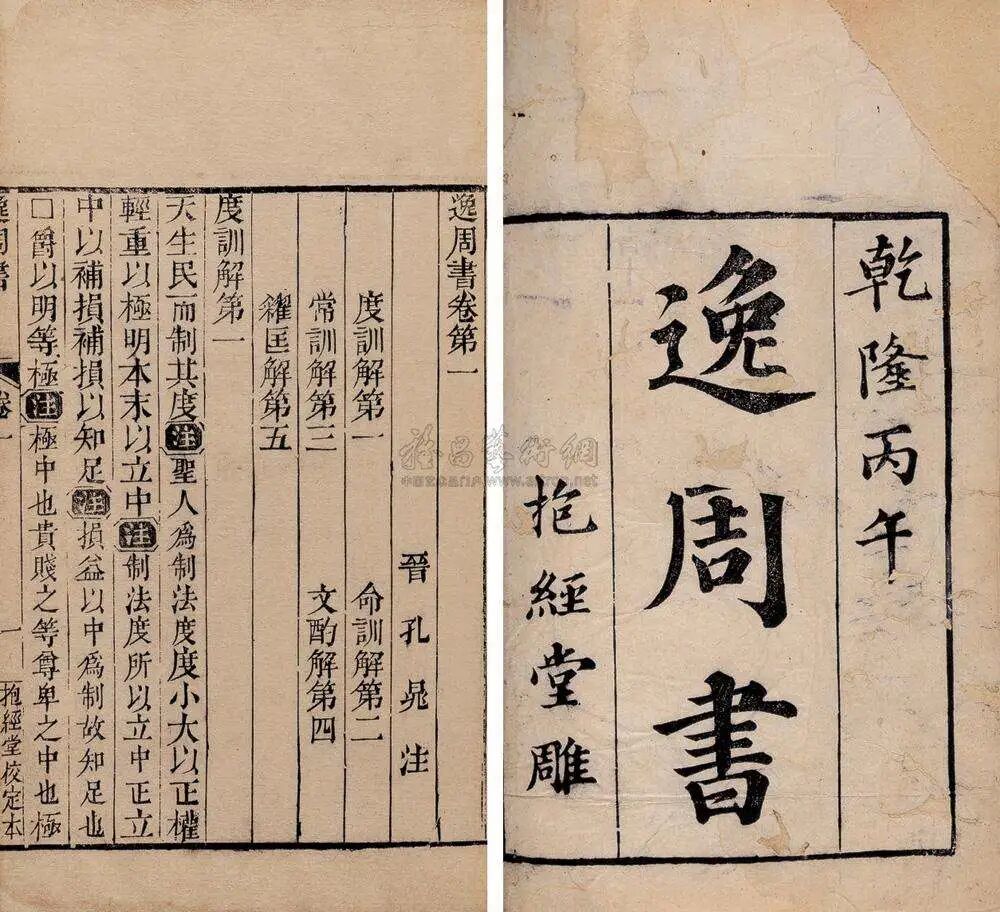 乾隆丙午
逸周書
抱經堂雕
逸周書卷第一
晉孔晁注
度訓解第一 命訓解第二
常訓解第三 文酌解第四
糴匡解第五
度訓解第一
天生民而制其度注聖人爲制法度度小大以正權
輕重以極明本末以立中注制法度所以立中正立
中以補損補損以知足注損益以中爲制故知足也
□爵以明等極注極中也貴賤之等尊卑之中也極
逸周書
卷一
一
抱經堂校定本